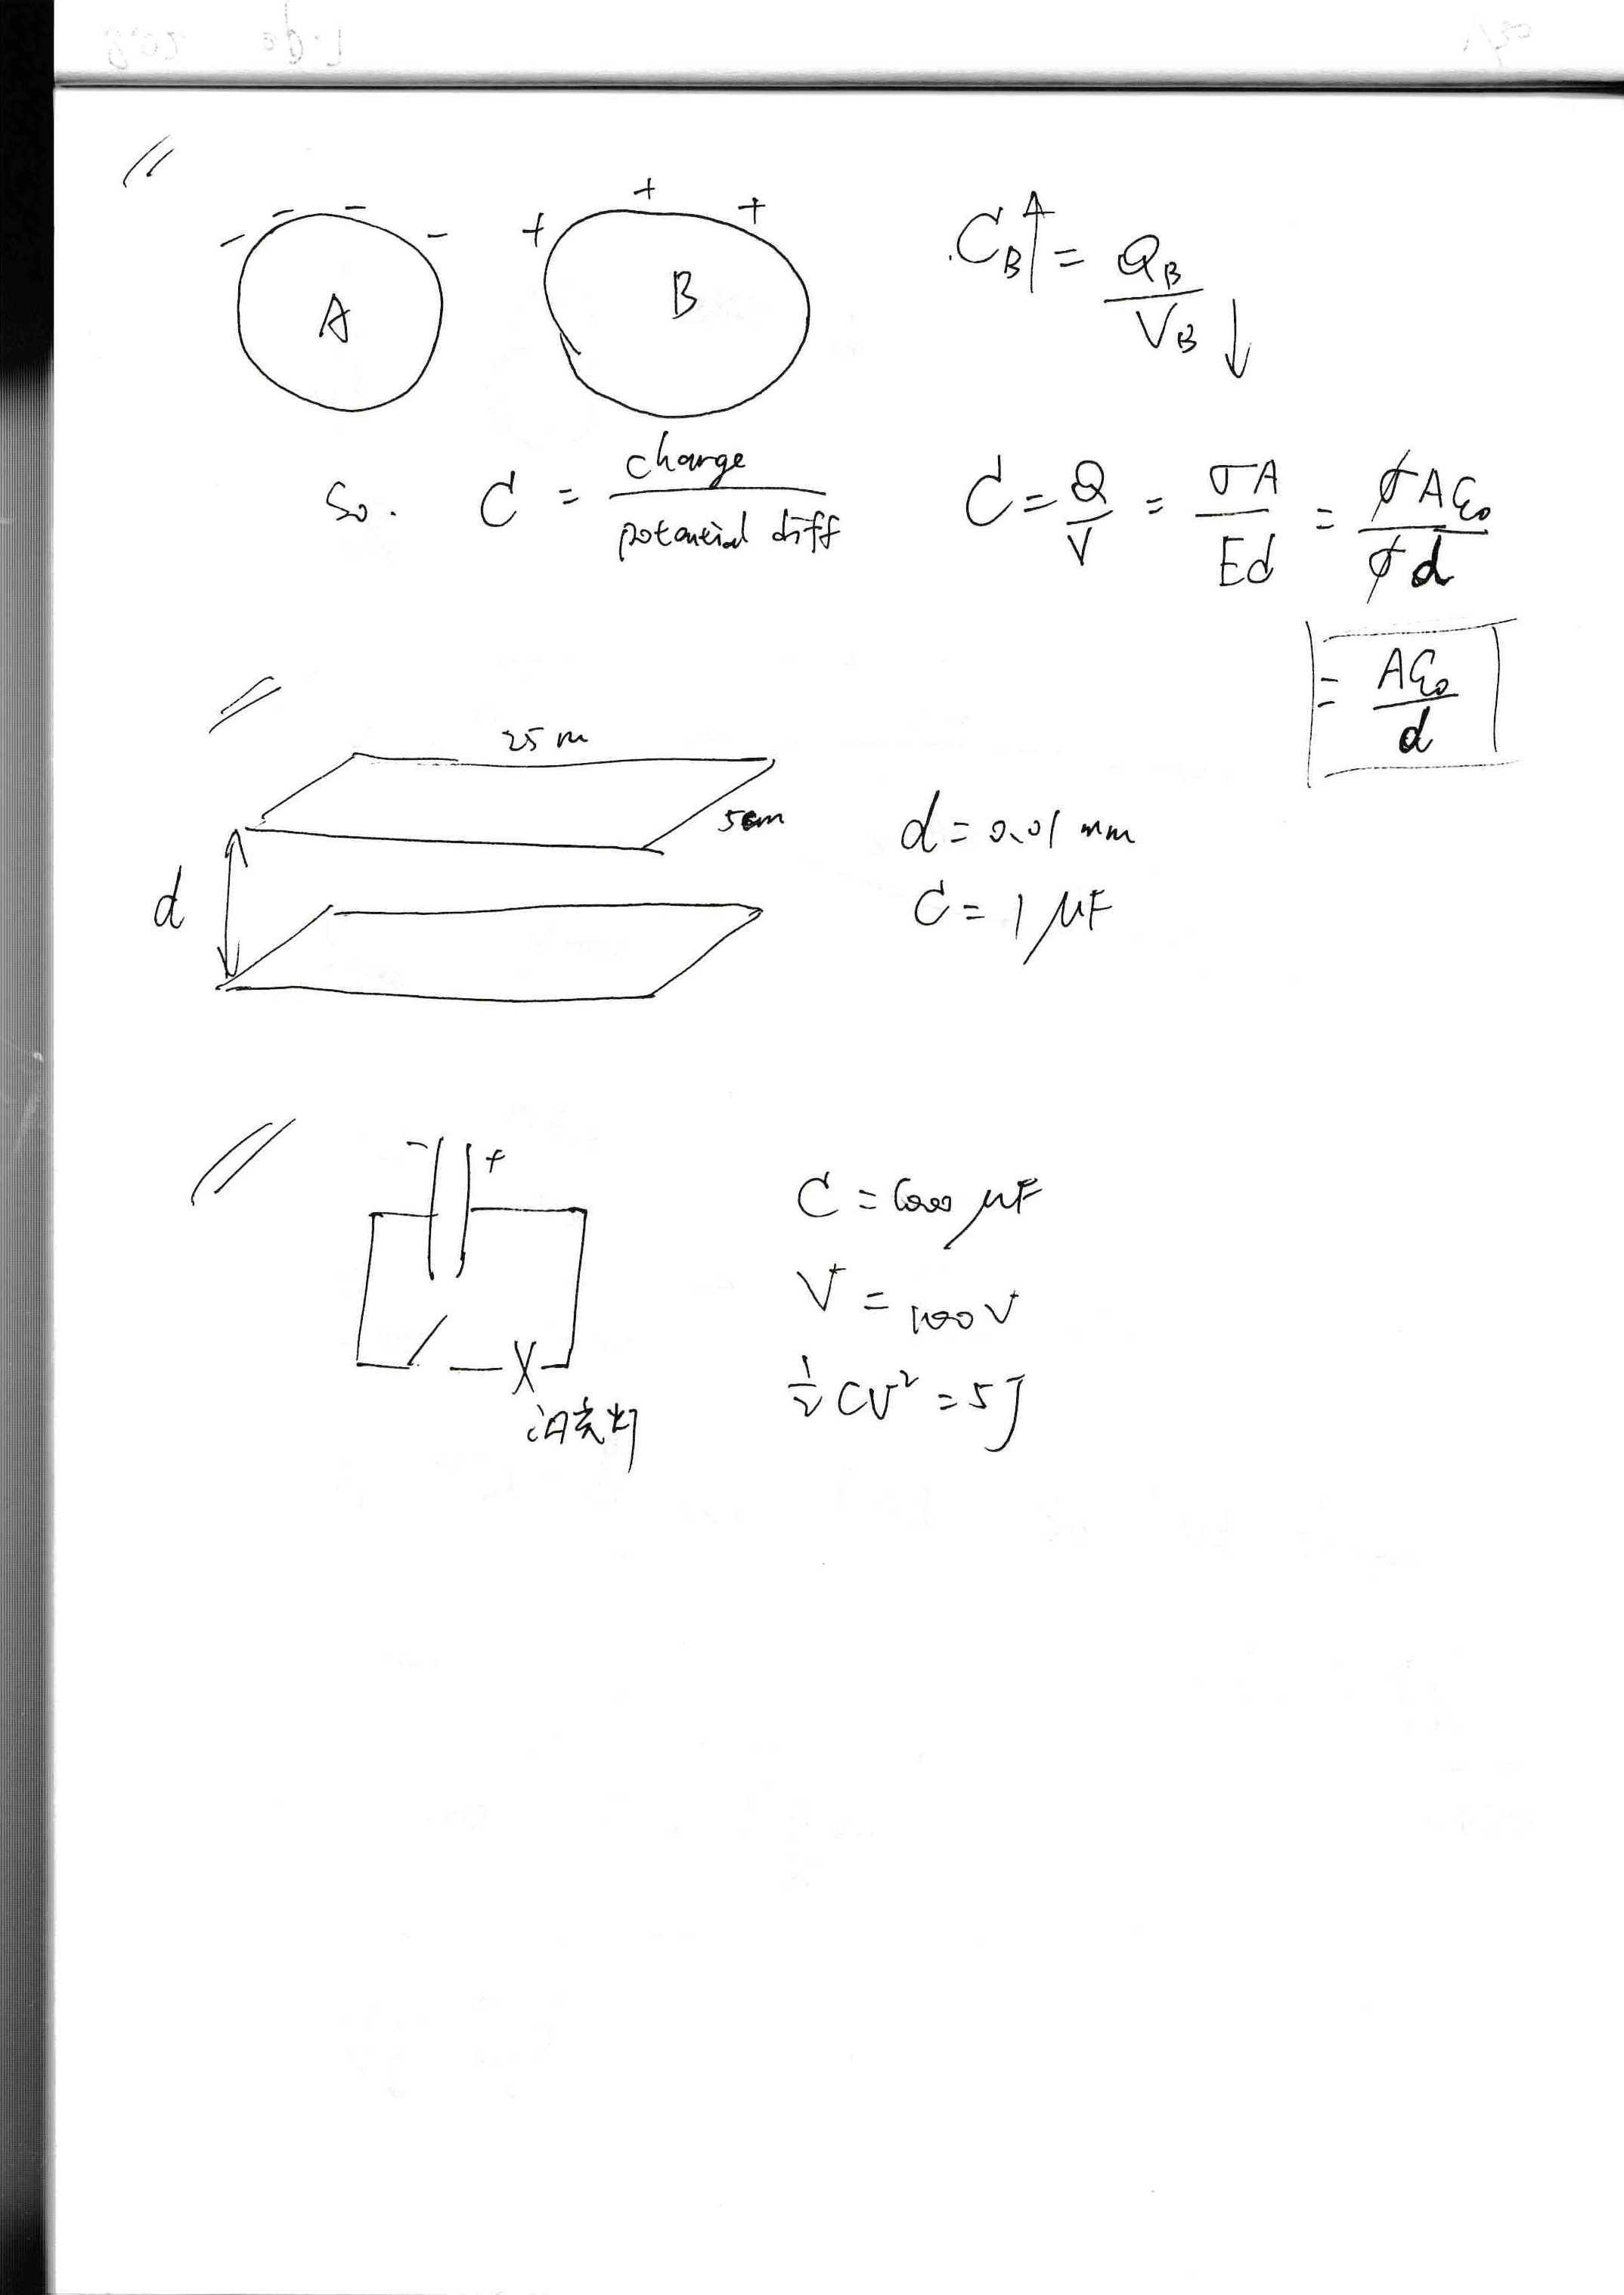 - - - - + + +
A B
C_B↑ = Q_B / V_B ↓
So. C = charge / potential diff
C = Q / V = σA / Ed = σAε₀ / σd
= Aε₀ / d
25 m
5cm
d
d = 0.01 mm
C = 1 μF
- +
C = 1000 μF
V = 100 V
½ CV² = 5J